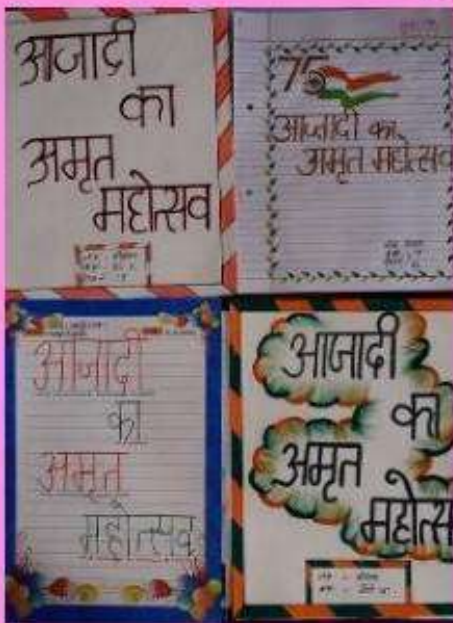 आजादी
का
अमृत
महोत्सव
75
आजादी का
अमृत महोत्सव
आजादी
का
अमृत
महोत्सव
आजादी
का
अमृत
महोत्स